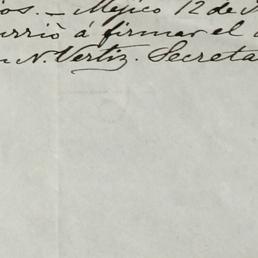 ios. — Mejico 12 de
urrió á firmar el
N. Vertiz. Secreta